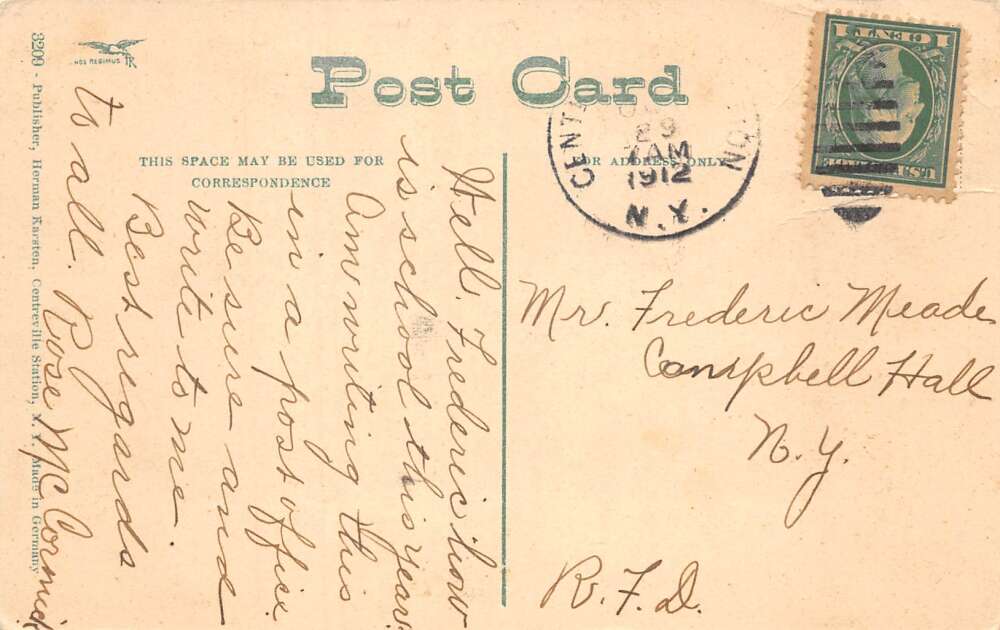 Post Card
THIS SPACE MAY BE USED FOR
CORRESPONDENCE
OR ADDRESS ONLY
Well, Frederic how
is school this year.
Am writing this
in a post office.
Be sure and
write to me.
Best regards
to all. Rose McCormick
NOS REGIMUS TR
3209 - Publisher, Herman Karsten, Centreville Station, N. Y. Made in Germany
1 CENT 1
CENT
29
7 AM
1912
N. Y.
Mr. Frederic Meade
Campbell Hall
N. Y.
R. F. D.